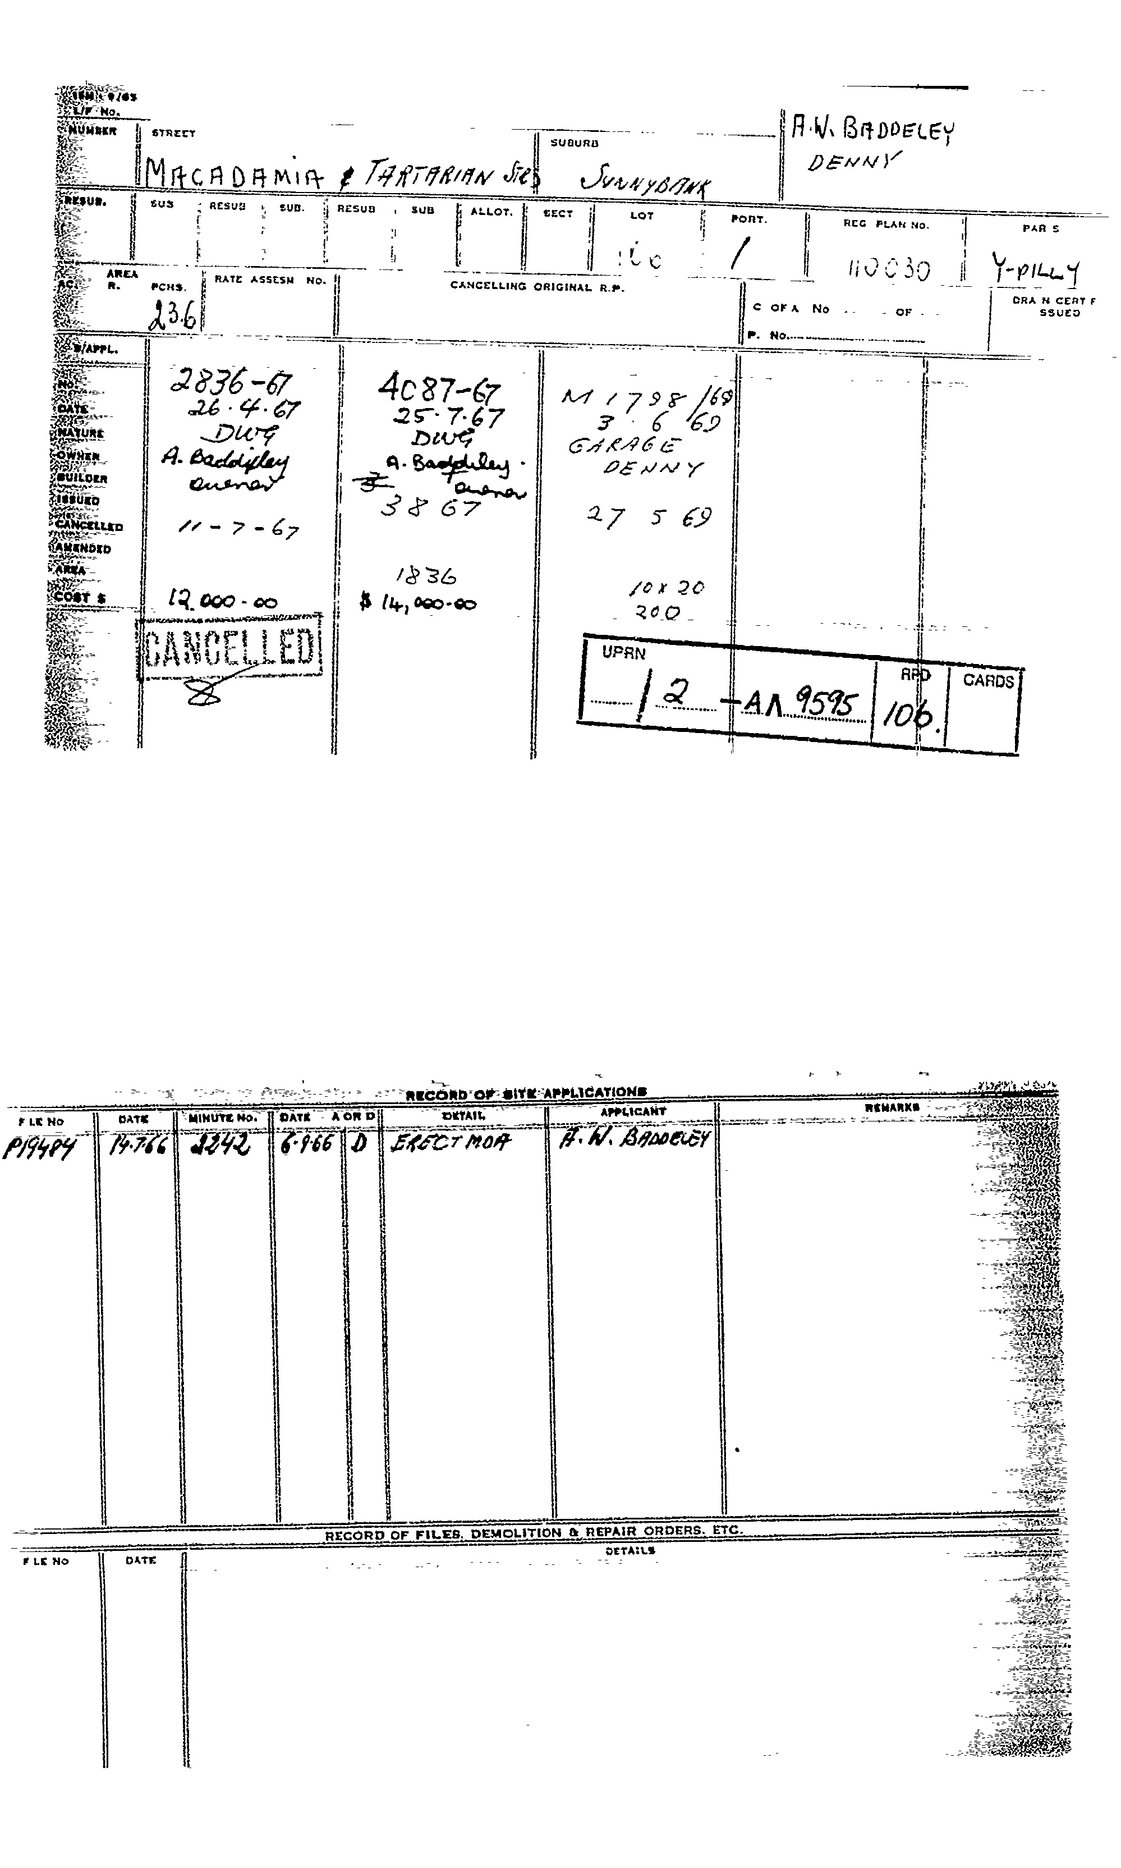 L/F No.
NUMBER STREET SUBURB A.W. BADDELEY
DENNY
MACADAMIA & TARTARIAN STRS SUNNYBANK
RESUB. SUB RESUB SUB. RESUB SUB ALLOT. SECT LOT PORT. REG PLAN No. PAR S
1 110030 Y-PILLY
AREA
AC. R. PCHS. RATE ASSESM No. CANCELLING ORIGINAL R.P. DRA N CERT F
SSUED
23.6 C OF A No OF
P. No.
B/APPL.
No. 2836-67 4087-67 M 1798/69
DATE 26.4.67 25.7.67 3.6 69
NATURE DWG DWG GARAGE
OWNER A. Baddeley A. Baddeley. DENNY
BUILDER owner owner
ISSUED 3 8 67 27 5 69
CANCELLED 11-7-67
AMENDED
AREA 1836 10 x 20
COST $ 12,000-00 $ 14,000-00 200
CANCELLED
UPRN RPD CARDS
/ 2 9595 106.
RECORD OF SITE APPLICATIONS
F LE No DATE MINUTE No. DATE A OR D DETAIL APPLICANT REMARKS
P19484 14.7.66 2242 6.9.66 D ERECT MDA A.W. BADDELEY
RECORD OF FILES, DEMOLITION & REPAIR ORDERS, ETC.
F LE No DATE DETAILS